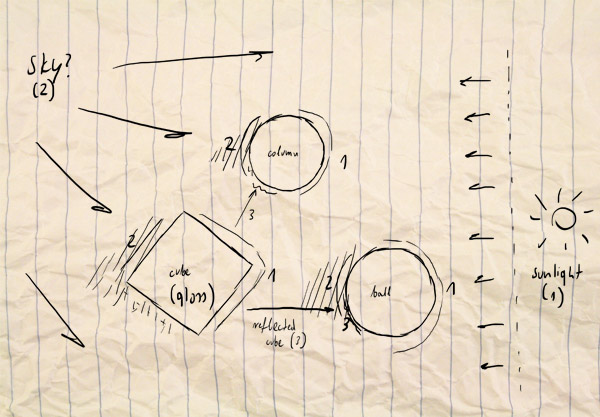 Sky?
(2)
2
column
1
3
2
cube
(gloss)
1
2
ball
1
3
reflected
cube (3)
sunlight
(1)